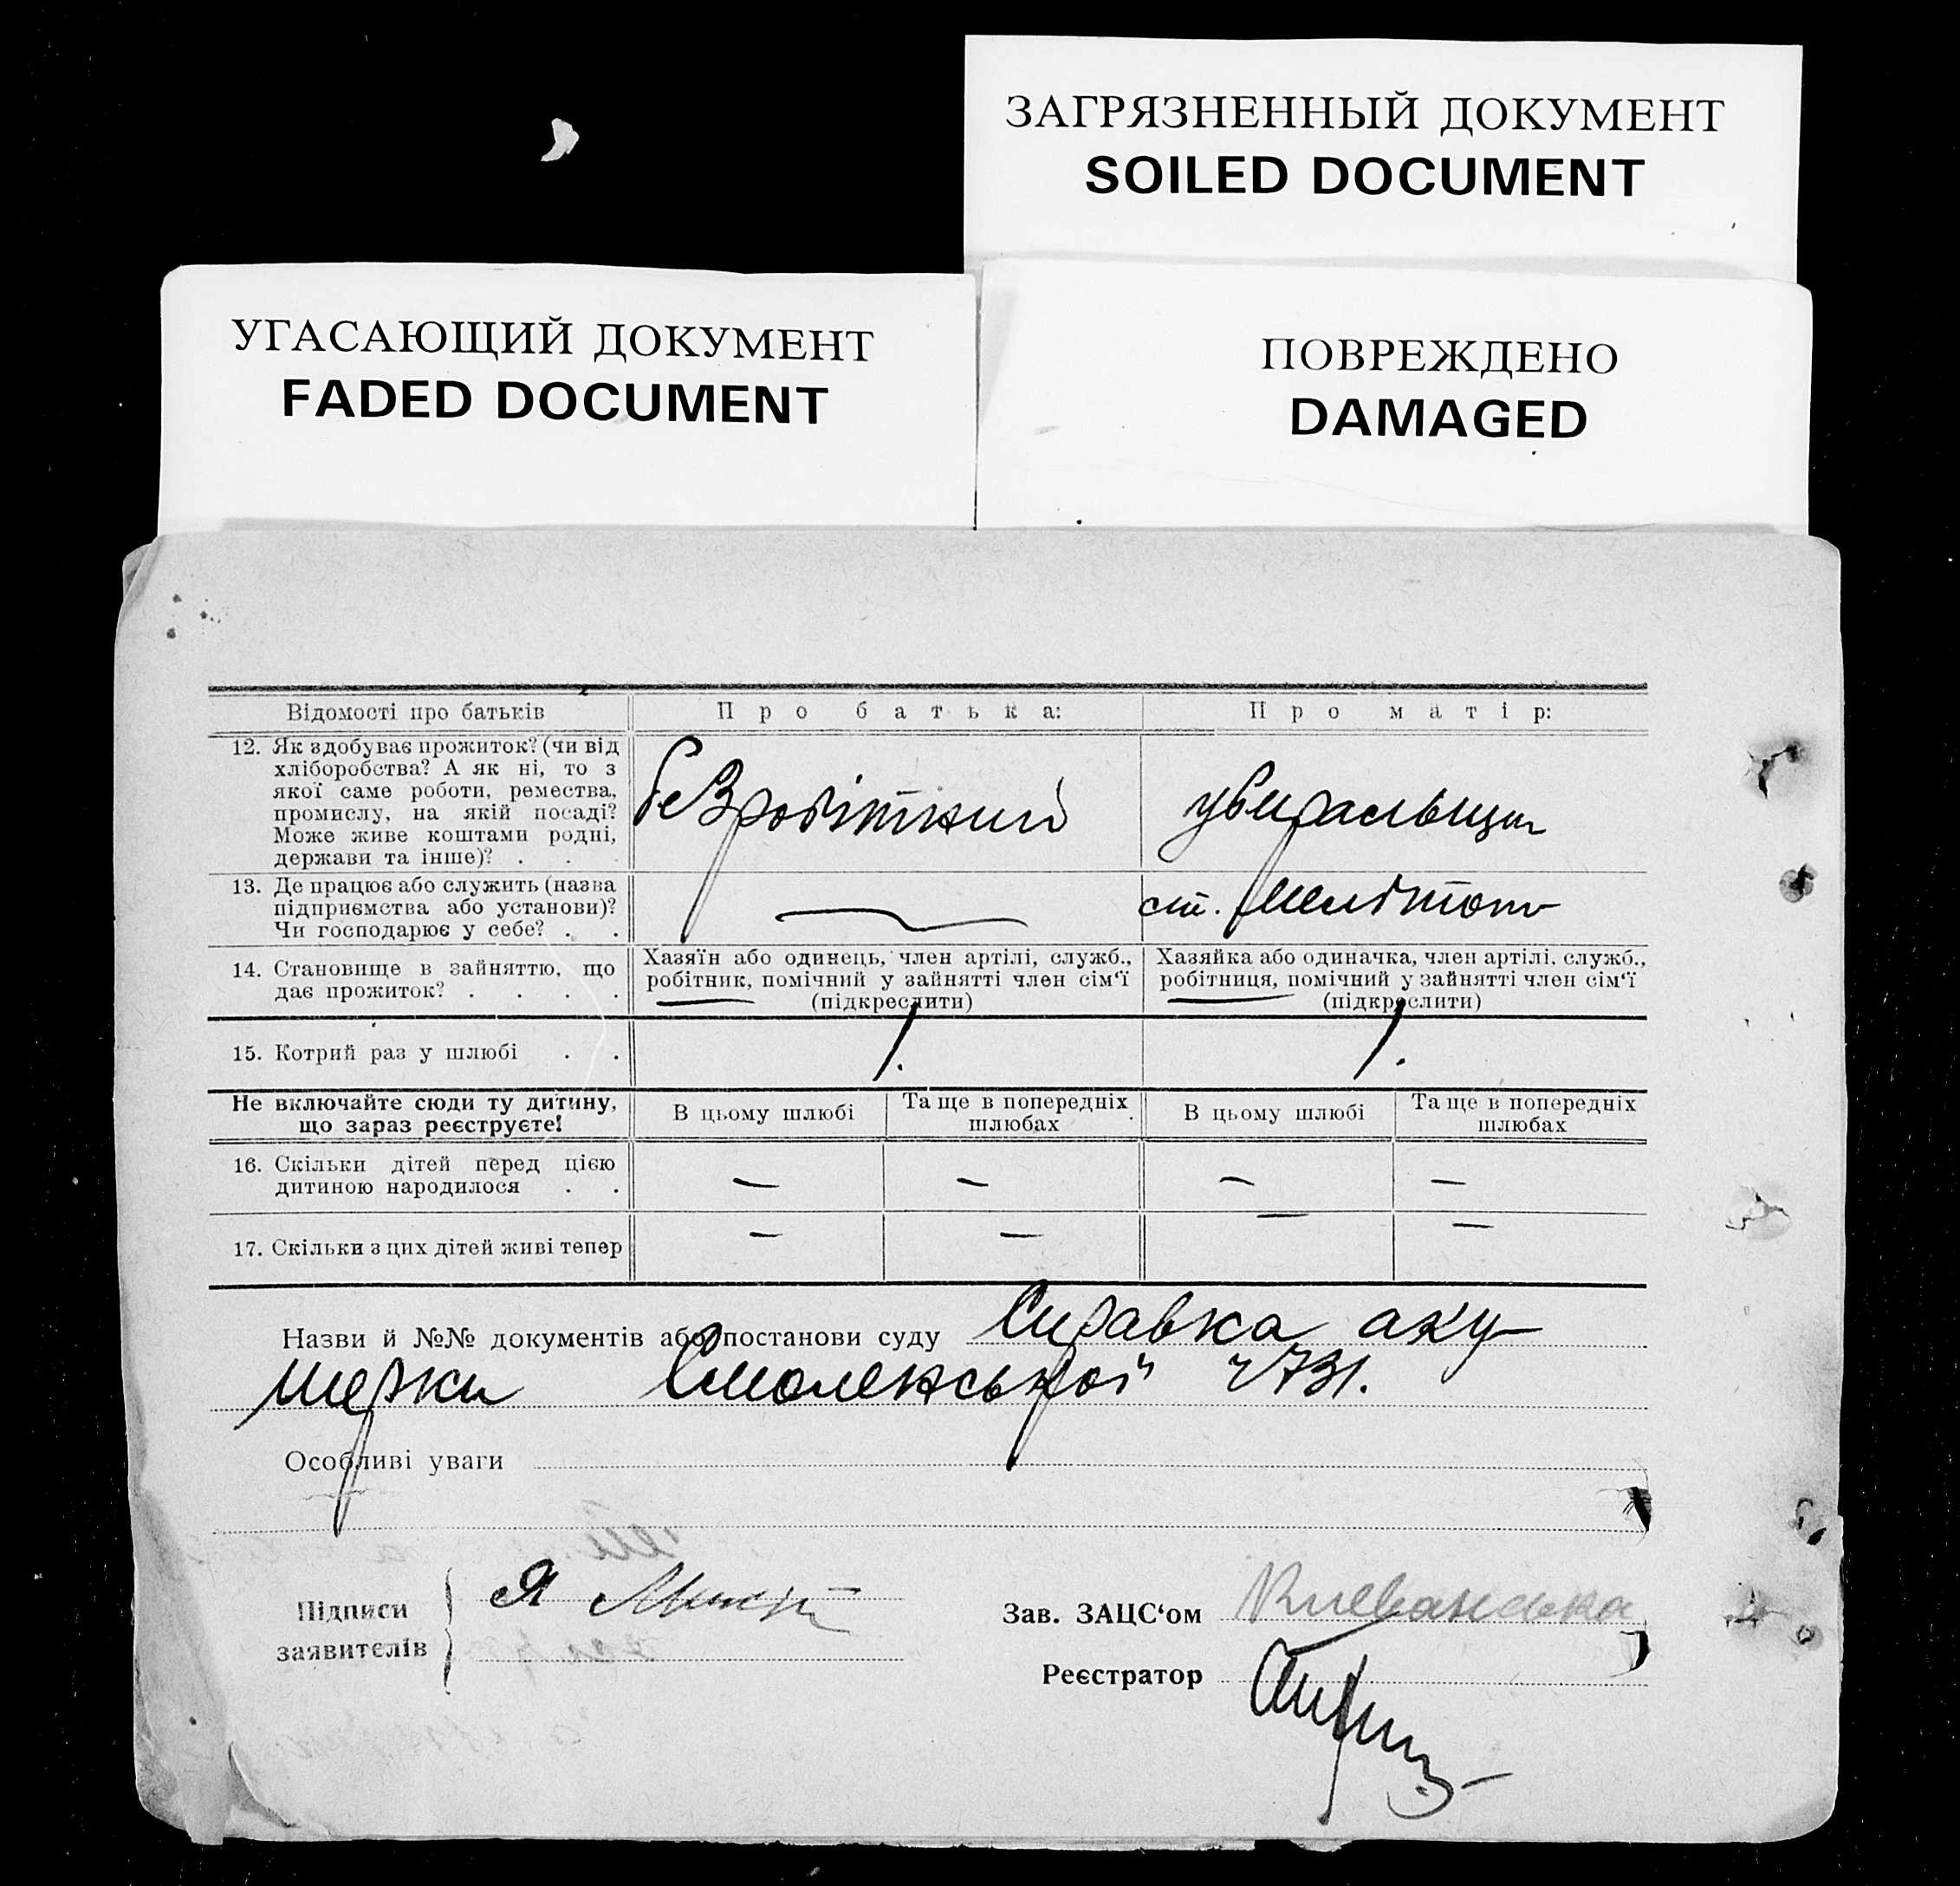 ЗАГРЯЗНЕННЫЙ ДОКУМЕНТ
SOILED DOCUMENT
УГАСАЮЩИЙ ДОКУМЕНТ
FADED DOCUMENT
ПОВРЕЖДЕНО
DAMAGED
Відомості про батьків
Про батька:
Про матір:
12. Як здобуває прожиток? (чи від
хліборобства? А як ні, то з
якої саме роботи, ремества,
промислу, на якій посаді?
Може живе коштами родні,
держави та інше)? . . .
безробітний
убиральщи
13. Де працює або служить (назва
підприємства або установи)?
Чи господарює у себе? . .
—
ст.
14. Становище в зайняттю, що
дає прожиток? . . . .
Хазяїн або одинець, член артілі, служб.,
робітник, помічний у зайнятті член сім‘ї
(підкреслити)
Хазяйка або одиначка, член артілі, служб.,
робітниця, помічний у зайнятті член сім‘ї
(підкреслити)
15. Котрий раз у шлюбі . .
1.
1.
Не включайте сюди ту дитину,
що зараз реєструєте!
В цьому шлюбі
Та ще в попередніх
шлюбах
В цьому шлюбі
Та ще в попередніх
шлюбах
16. Скільки дітей перед цією
дитиною народилося . .
— — — —
17. Скільки з цих дітей живі тепер
— — — —
Назви й №№ документів або постанови суду Справка аку-
шерки Смоленської
Особливі уваги
Підписи
заявителів
Я
Зав. ЗАЦС‘ом
Реєстратор